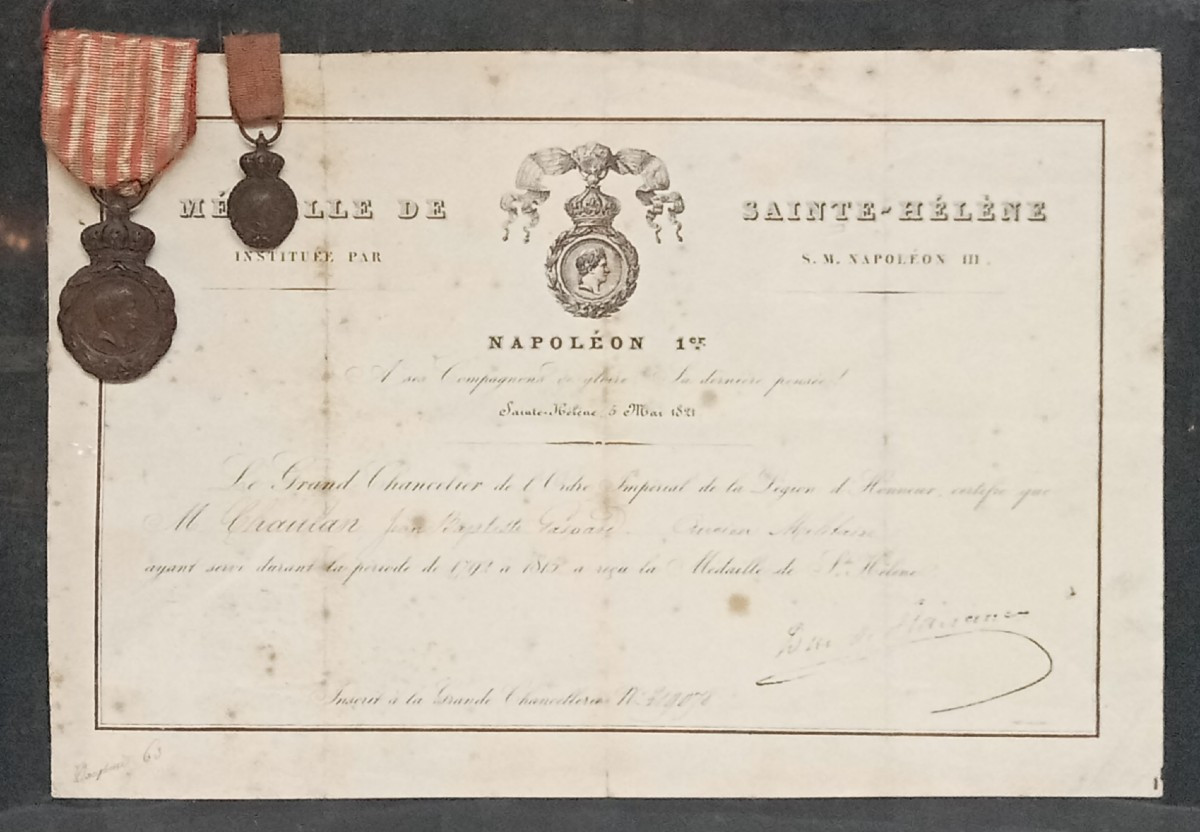 MÉ LLE DE SAINTE-HÉLÈNE
INSTITUÉE PAR S. M. NAPOLÉON III.
NAPOLÉON 1er.
A ses Compagnons de gloire Sa dernière pensée!
Sainte-Hélène, 5 Mai 1821
Le Grand Chancelier de l'Ordre Impérial de la Légion d'Honneur, certifie que
M Jean Baptiste Ancien Militaire
ayant servi durant la période de 1792 à 1815 a reçu la Médaille de Ste Hélène.
Inscrit à la Grande Chancellerie N°